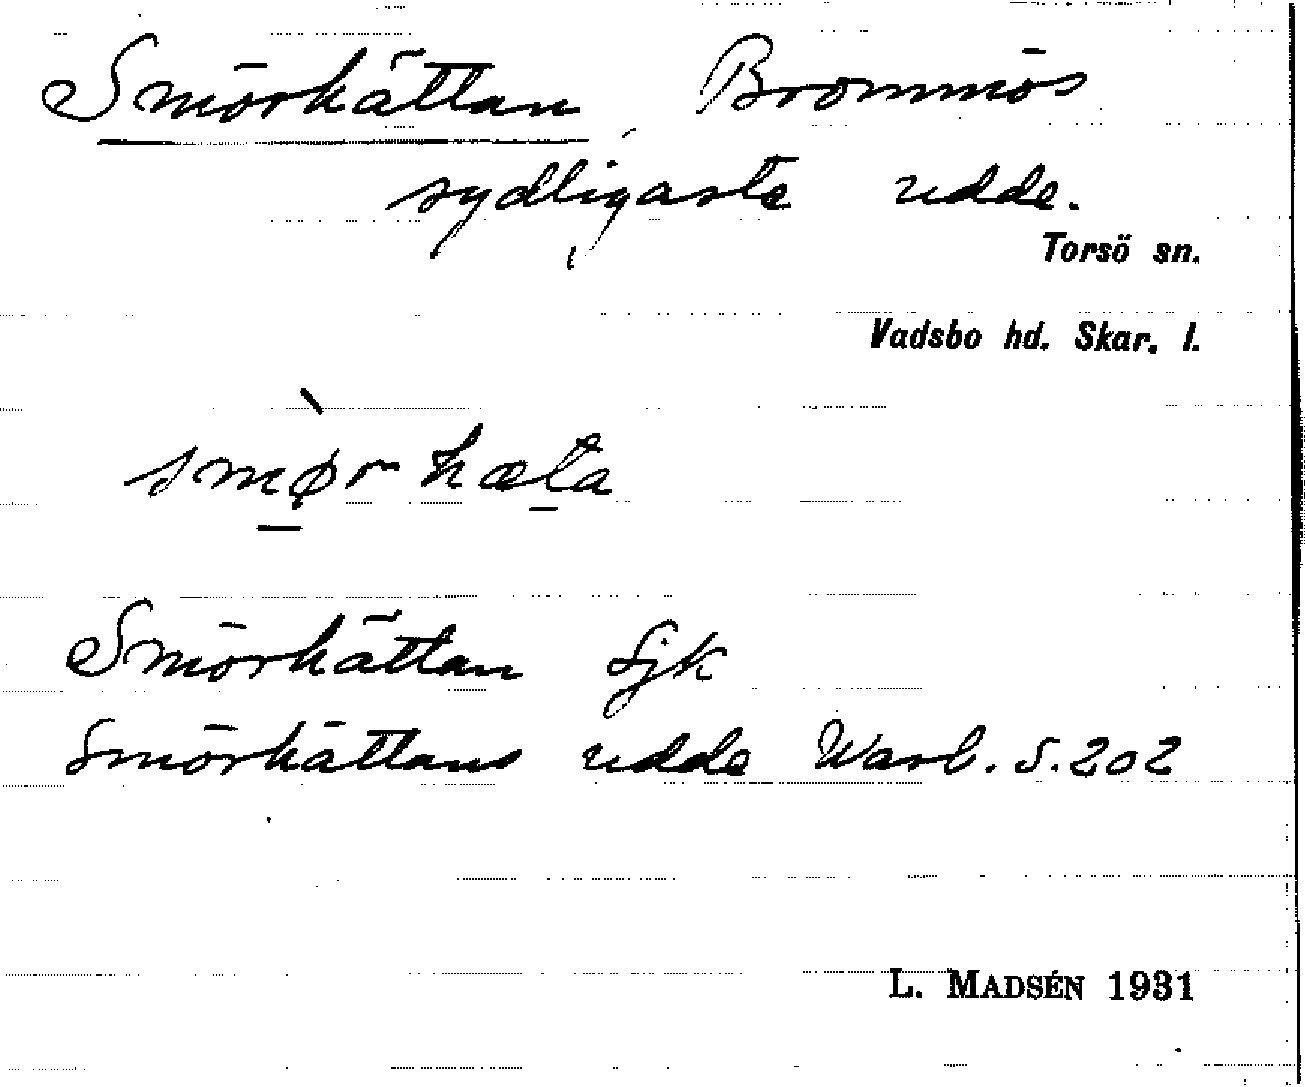 Smörhättan, Brommös
sydligaste udde.
Torsö sn.
Vadsbo hd. Skar. l.
smørhæta
Smörhättan Sjk
Smörhättans udde Warb. S. 202
L. MADSÉN 1931